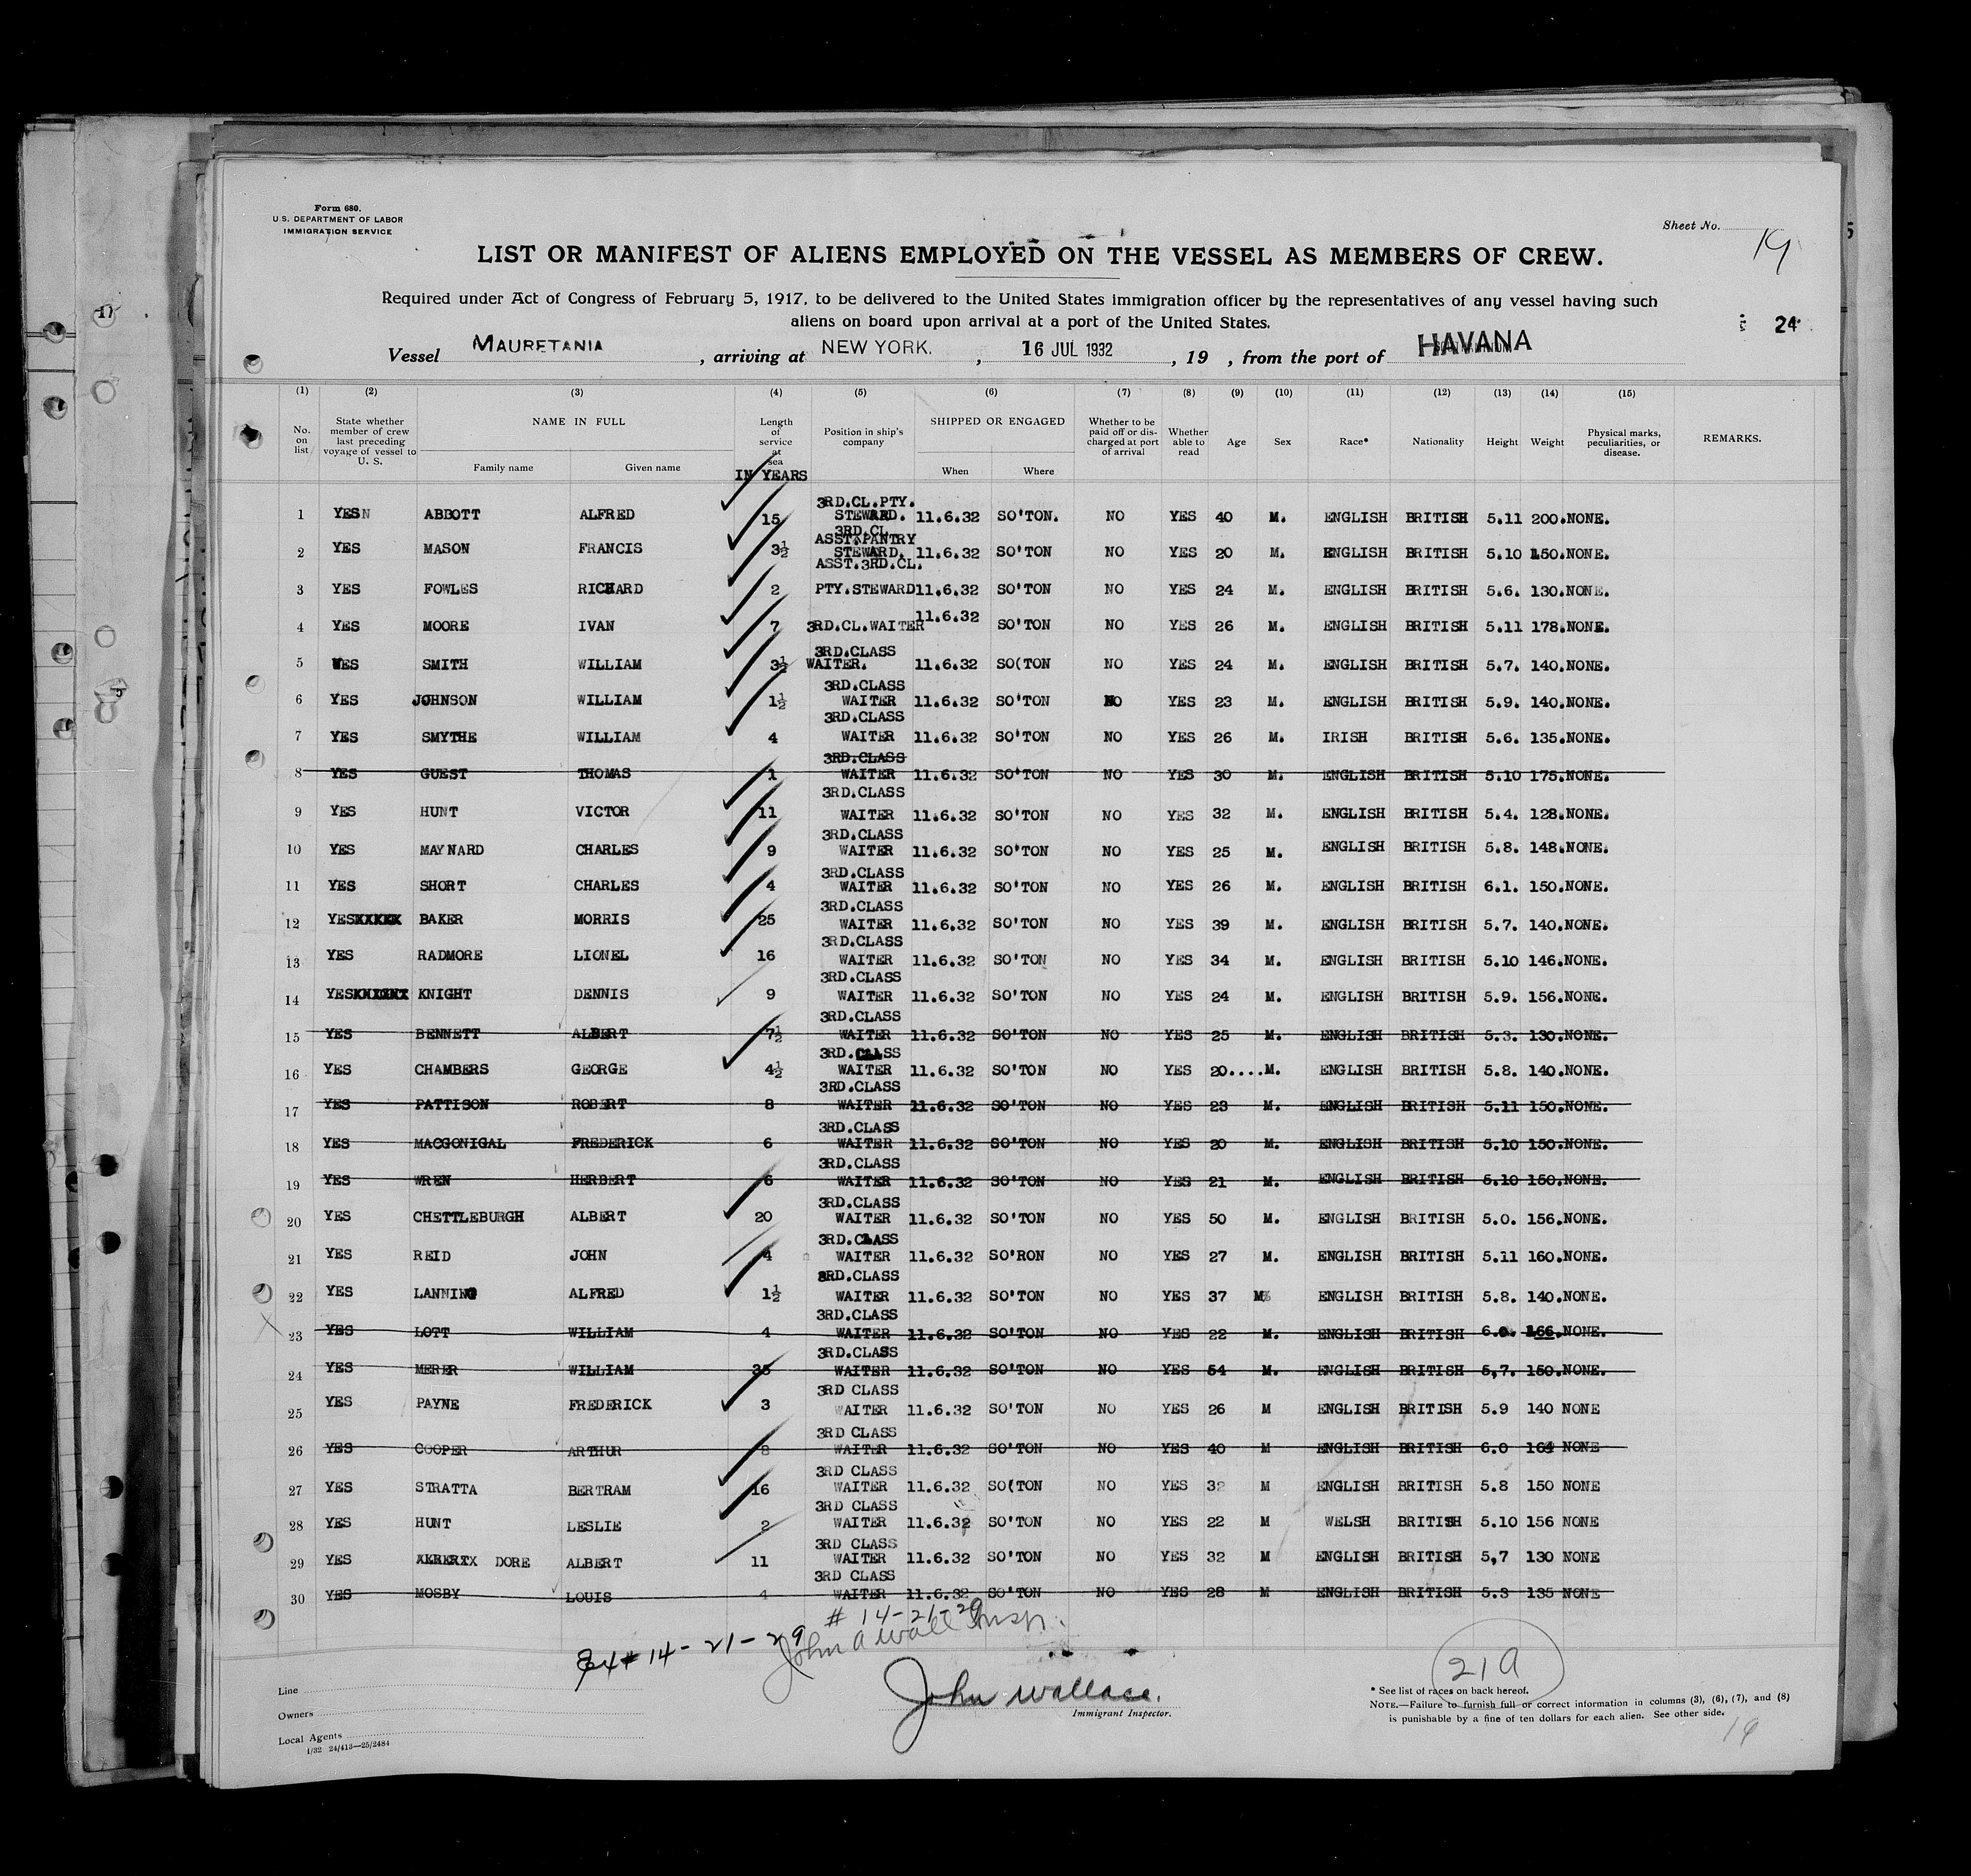 Form 680.
U. S. DEPARTMENT OF LABOR
IMMIGRATION SERVICE
Sheet No. 19
LIST OR MANIFEST OF ALIENS EMPLOYED ON THE VESSEL AS MEMBERS OF CREW.
Required under Act of Congress of February 5, 1917, to be delivered to the United States immigration officer by the representatives of any vessel having such
aliens on board upon arrival at a port of the United States.
24
Vessel MAURETANIA, arriving at NEW YORK., 16 JUL 1932, 19 , from the port of HAVANA
(1) (2) (3) (4) (5) (6) (7) (8) (9) (10) (11) (12) (13) (14) (15)
No. on list State whether member of crew last preceding voyage of vessel to U. S. NAME IN FULL Family name Given name Length of service at sea IN YEARS Position in ship's company SHIPPED OR ENGAGED When Where Whether to be paid off or discharged at port of arrival Whether able to read Age Sex Race* Nationality Height Weight Physical marks, peculiarities, or disease. REMARKS.
1 YESN ABBOTT ALFRED 15 3RD.CL.PTY. STEWARD. 11.6.32 SO'TON. NO YES 40 M. ENGLISH BRITISH 5.11 200.NONE.
2 YES MASON FRANCIS 3½ 3RD.CL. ASST.PANTRY STEWARD. 11.6.32 SO'TON NO YES 20 M. ENGLISH BRITISH 5.10 150.NONE.
3 YES FOWLES RICHARD 2 ASST.3RD.CL. PTY.STEWARD 11.6.32 SO'TON NO YES 24 M. ENGLISH BRITISH 5.6. 130.NONE.
4 YES MOORE IVAN 7 3RD.CL.WAITER 11.6.32 SO'TON NO YES 26 M. ENGLISH BRITISH 5.11 178.NONE.
5 YES SMITH WILLIAM 3½ 3RD.CLASS WAITER. 11.6.32 SO(TON NO YES 24 M. ENGLISH BRITISH 5.7. 140.NONE.
6 YES JOHNSON WILLIAM 1½ 3RD.CLASS WAITER 11.6.32 SO'TON NO YES 23 M. ENGLISH BRITISH 5.9. 140.NONE.
7 YES SMYTHE WILLIAM 4 3RD.CLASS WAITER 11.6.32 SO'TON NO YES 26 M. IRISH BRITISH 5.6. 135.NONE.
8 YES GUEST THOMAS 1 3RD.CLASS WAITER 11.6.32 SO'TON NO YES 30 M. ENGLISH BRITISH 5.10 175.NONE.
9 YES HUNT VICTOR 11 3RD.CLASS WAITER 11.6.32 SO'TON NO YES 32 M. ENGLISH BRITISH 5.4. 128.NONE.
10 YES MAYNARD CHARLES 9 3RD.CLASS WAITER 11.6.32 SO'TON NO YES 25 M. ENGLISH BRITISH 5.8. 148.NONE.
11 YES SHORT CHARLES 4 3RD.CLASS WAITER 11.6.32 SO'TON NO YES 26 M. ENGLISH BRITISH 6.1. 150.NONE.
12 YESXXXXX BAKER MORRIS 25 3RD.CLASS WAITER 11.6.32 SO'TON NO YES 39 M. ENGLISH BRITISH 5.7. 140.NONE.
13 YES RADMORE LIONEL 16 3RD.CLASS WAITER 11.6.32 SO'TON NO YES 34 M. ENGLISH BRITISH 5.10 146.NONE.
14 YES KNIGHT DENNIS 9 3RD.CLASS WAITER 11.6.32 SO'TON NO YES 24 M. ENGLISH BRITISH 5.9. 156.NONE.
15 YES BENNETT ALBERT 7½ 3RD.CLASS WAITER 11.6.32 SO'TON NO YES 25 M. ENGLISH BRITISH 5.3. 130.NONE.
16 YES CHAMBERS GEORGE 4½ 3RD.CLASS WAITER 11.6.32 SO'TON NO YES 20....M. ENGLISH BRITISH 5.8. 140.NONE.
17 YES PATTISON ROBERT 8 3RD.CLASS WAITER 11.6.32 SO'TON NO YES 23 M. ENGLISH BRITISH 5.11 150.NONE.
18 YES MACGONIGAL FREDERICK 6 3RD.CLASS WAITER 11.6.32 SO'TON NO YES 20 M. ENGLISH BRITISH 5.10 150.NONE.
19 YES WREN HERBERT 6 3RD.CLASS WAITER 11.6.32 SO'TON NO YES 21 M. ENGLISH BRITISH 5.10 150.NONE.
20 YES CHETTLEBURGH ALBERT 20 3RD.CLASS WAITER 11.6.32 SO'TON NO YES 50 M. ENGLISH BRITISH 5.0. 156.NONE.
21 YES REID JOHN 4 3RD.CLASS WAITER 11.6.32 SO'RON NO YES 27 M. ENGLISH BRITISH 5.11 160.NONE.
22 YES LANNING ALFRED 1½ 3RD.CLASS WAITER 11.6.32 SO'TON NO YES 37 M ENGLISH BRITISH 5.8. 140.NONE.
23 YES LOTT WILLIAM 4 3RD.CLASS WAITER 11.6.32 SO'TON NO YES 22 M. ENGLISH BRITISH 6.0. 166.NONE.
24 YES MERER WILLIAM 35 3RD.CLASS WAITER 11.6.32 SO'TON NO YES 54 M. ENGLISH BRITISH 5,7. 150.NONE.
25 YES PAYNE FREDERICK 3 3RD CLASS WAITER 11.6.32 SO'TON NO YES 26 M ENGLISH BRITISH 5.9 140 NONE
26 YES COOPER ARTHUR 8 3RD CLASS WAITER 11.6.32 SO'TON NO YES 40 M ENGLISH BRITISH 6.0 164 NONE
27 YES STRATTA BERTRAM 16 3RD CLASS WAITER 11.6.32 SO(TON NO YES 32 M ENGLISH BRITISH 5.8 150 NONE
28 YES HUNT LESLIE 2 3RD CLASS WAITER 11.6.32 SO'TON NO YES 22 M WELSH BRITISH 5.10 156 NONE
29 YES DORE ALBERT 11 3RD CLASS WAITER 11.6.32 SO'TON NO YES 32 M ENGLISH BRITISH 5,7 130 NONE
30 YES MOSBY LOUIS 4 3RD CLASS WAITER 11.6.32 SO'TON NO YES 28 M ENGLISH BRITISH 5.3 135 NONE
# 14-21-29
# 14-21-29 John A Wall Insp.
21A
John Wallace.
Immigrant Inspector.
Line
Owners
Local Agents
1/32 24/413—25/2484
* See list of races on back hereof.
NOTE.—Failure to furnish full or correct information in columns (3), (6), (7), and (8)
is punishable by a fine of ten dollars for each alien. See other side.